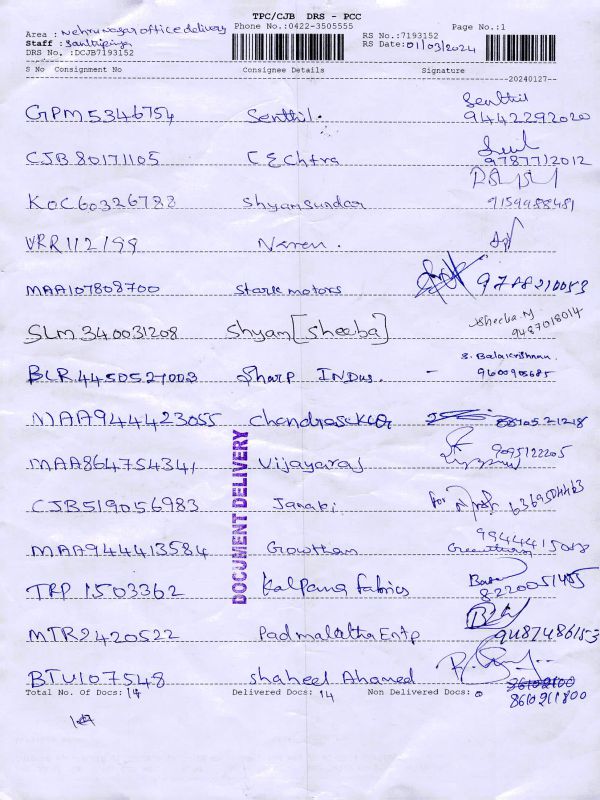 TPC/CJB DRS - PCC
Area : Nehru nagar office delivery Phone No.:0422-3505555 Page No.:1
Staff : Santhipriya RS No.:7193152
DRS No. :DCJB7193152 RS Date:01/03/2024
S No Consignment No Consignee Details Signature
20240127
GPM5346754 Senthil. Senthil
9442292020
CJB80171105 C E Chtra 9787712012
KOC60326788 Shyamsundar 9159988481
VRR112199 Naren.
MAA107808700 Stark motors 9788210083
SLM340031208 Shyam [Sheeba] Sheeba.N
9487018014
BLR4450521003 Sharp INDUS. - S. Balakrishnan
9600905685
MAA944423055 Chandrasekar
DOCUMENT DELIVERY
MAA864754341 Vijayaraj 9095122205
CJB519056983 Janaki for 6369504463
MAA944413584 Gowtham 9944415088
Gowtham
TRP1503362 Kalpana Fabrics 8220051485
MTR2420522 Padmalatha Entp 9487486153
BTU107548 Shaheel Ahamed
Total No. Of Docs: 14 Delivered Docs: 14 Non Delivered Docs: 0 8610261800